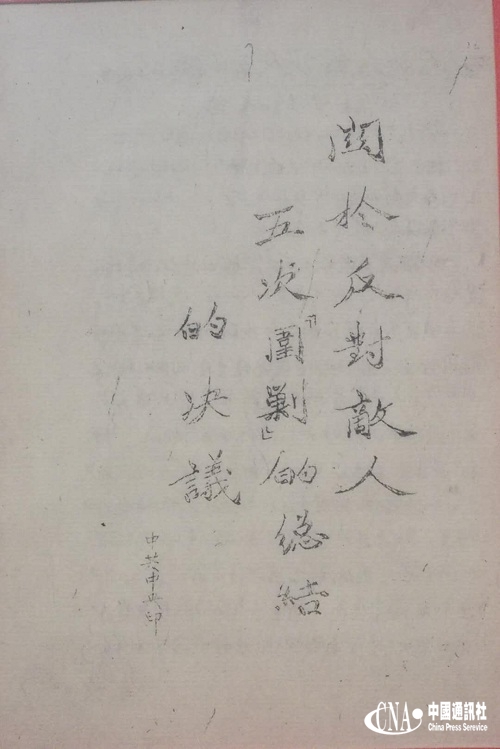 關於反對敵人
五次「圍剿」的總結
的决議
中共中央印
CNA 中國通訊社
China Press Serevice